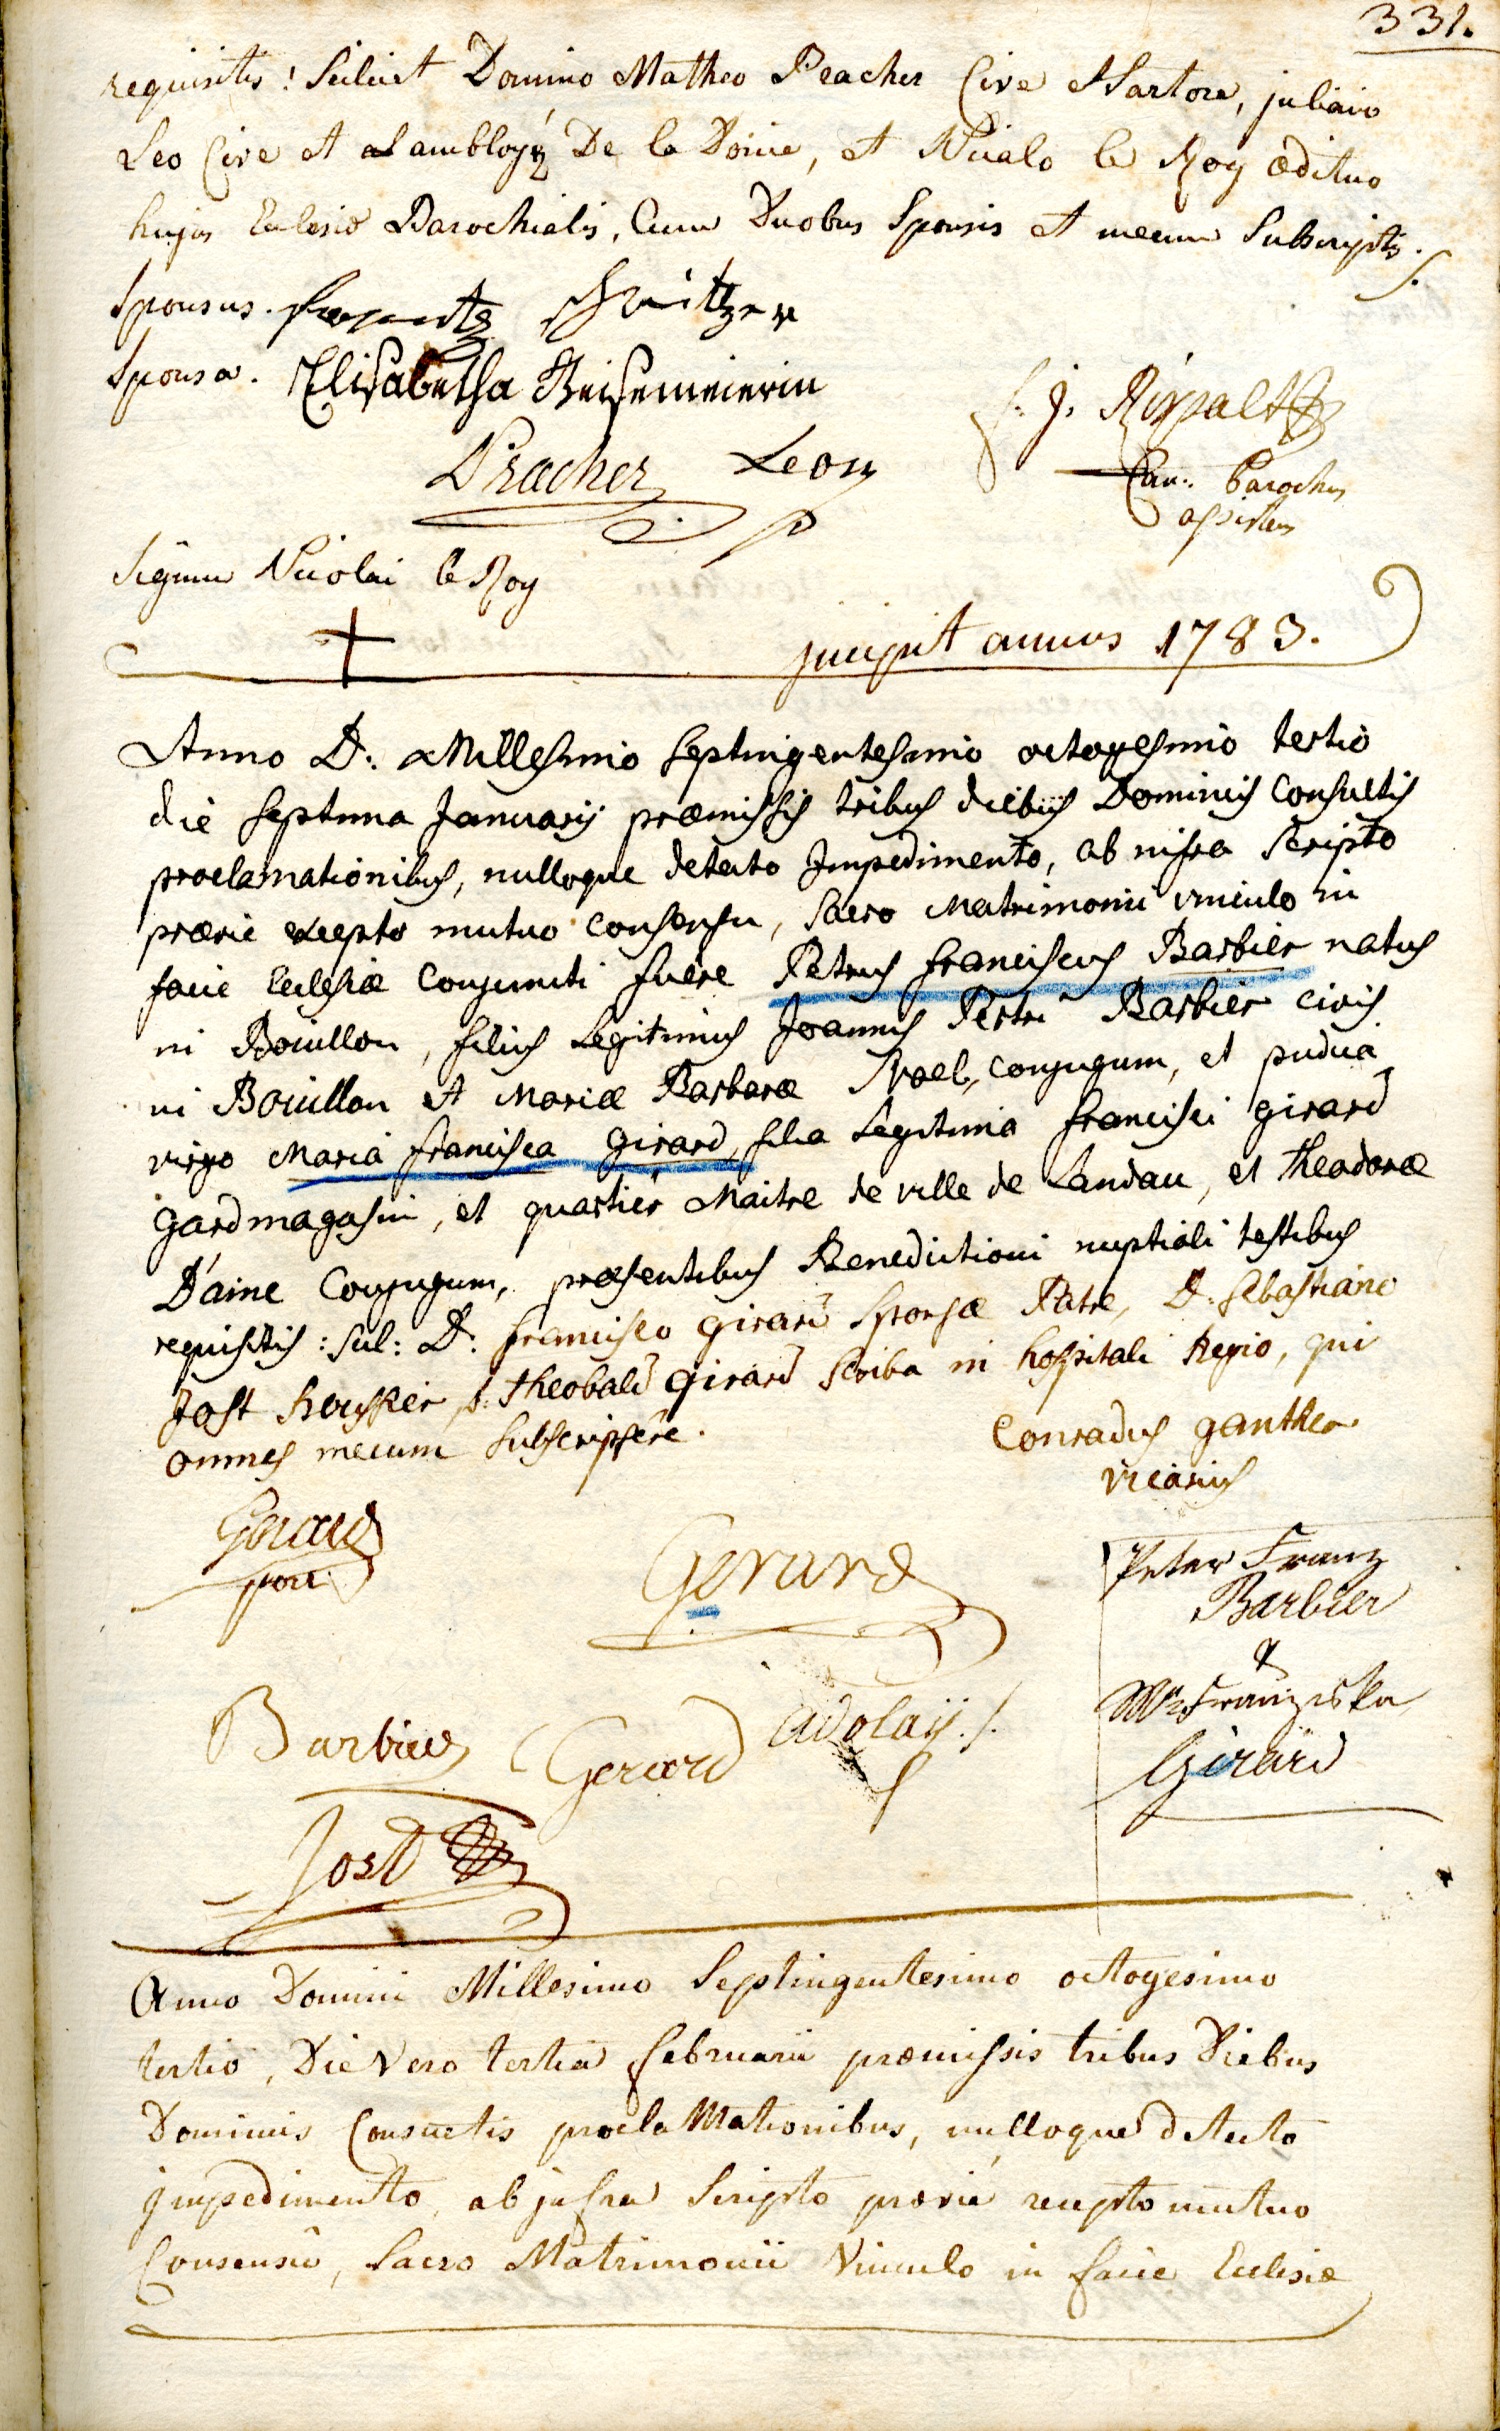 331.
requisitis! Scilicet Domino Matheo Pracher Cive et Sartore, juliano
Leo Cive et De la Doine, et Nicolo le Roy ædituo
hujus Eclesiæ Parochialis, Cum Duobus Sponsis et mecum Subscriptis ./.
Sponsus. Schnitzer
Sponsa. Elisabetha Geisemeierin
f. j. Rippalt
Pracher Leon
Can. Parochus
assistens
Signum Nicolai le Roy
+
jncipit annus 1783.
Anno D: Millesimo septingentesimo octogesimo tertio
die septima Januarij præmissis tribus diebus Dominicis Consultis
proclamationibus, nulloque detecto Impedimento, ab infra scripto
prævie excepto mutuo consensu, sacro Matrimonii vinculo in
facie Ecclesiæ conjuncti fuere Petrus franciscus Barbier natus
in Bouillon, filius Legitimus Joannis Petri Barbier civis
in Bouillon et Mariæ Barbaræ conjugum, et pudica
virgo Maria francisca Girard, filia Legitima francisci Girard
gardmagasin, et quartier Maitre de ville de Landau, et theodoræ
D'aine Conjugum, præsentibus Benedictioni nuptiali testibus
requisitis: scil: D: francisco Girard Sponsæ Patre, D: Sebastiano
Jost theobald Girard scriba in hospitali Regio, qui
omnes mecum subscripsere.
Conradus ganther
vicarius
Girard
Gerard
Peter Franz
Barbier
Barbier Gerard adolaij ./.
Mr Franziska
Girard
Jost
Anno Domini Millesimo Septingentesimo octogesimo
tertio, Die Vero tertia februarii præmissis tribus Diebus
Dominicis Consuetis proclaMationibus, nulloque detecto
jmpedimento, ab jnfra Scripto prævie recepto mutuo
Consensu, Sacro Matrimonii Vinculo in facie Eclesiæ